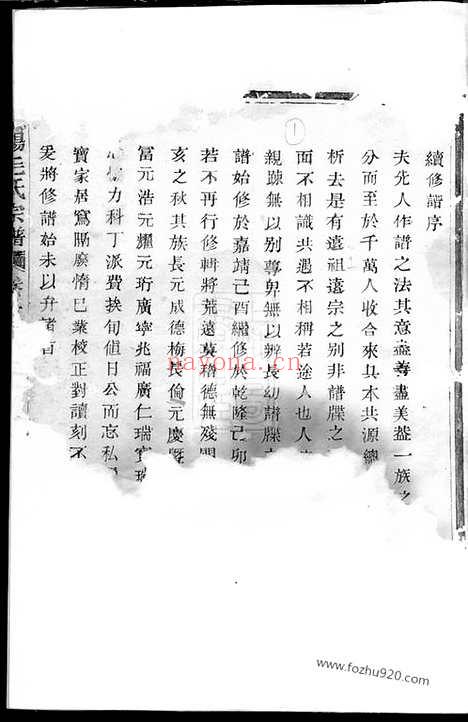 續修譜序
夫先人作譜之法其意盡善盡美蓋一族之
分而至於千萬人收合來具本共源總
析去是有遠祖遠宗之別非譜牒之
面不相識共遇不相稱若途人也人
親踈無以別尊卑無以辨長幼譜牒
譜始修於嘉靖己酉繼修於乾隆己卯
若不再行修輯將荒遠莫稽德無殘
亥之秋其族長元成德梅長倫元慶
富元浩元耀元珩廣寧兆福廣仁瑞寶瑞
力科丁派費挨旬值日公而忘私
寶家居寫賬廢惰已業校正對讀刻不
爰將修譜始末以弁諸首
毛氏宗譜
nayona.cn
www.fozhu920.com
1